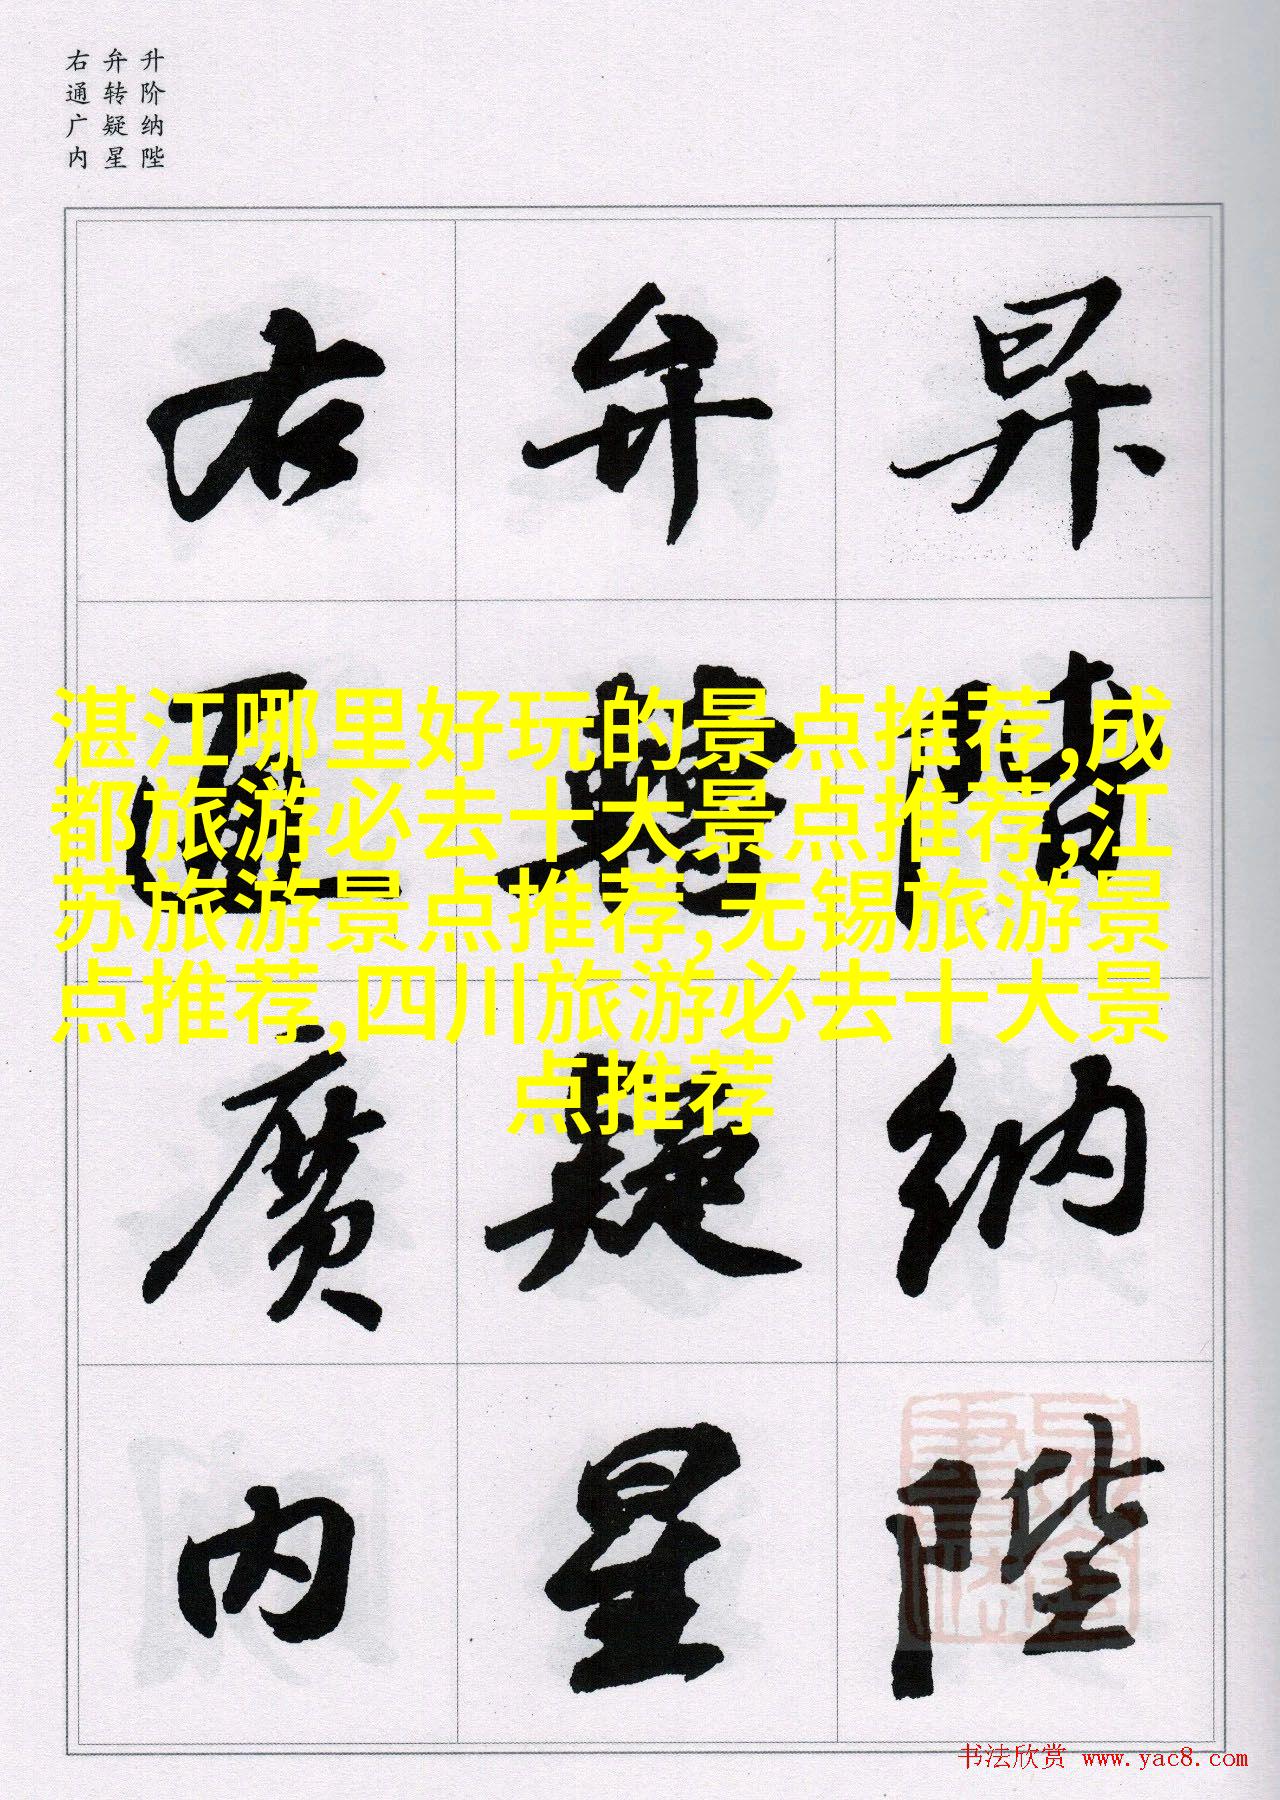 升阶纳陛
弁转疑星
右通广内
昇
階
納
陛
弁
轉
疑
星
右
通
廣
内
湛江哪里好玩的景点推荐,成
都旅游必去十大景点推荐,江
苏旅游景点推荐,无锡旅游景
点推荐,四川旅游必去十大景
点推荐
书法欣赏 www.yac8.com